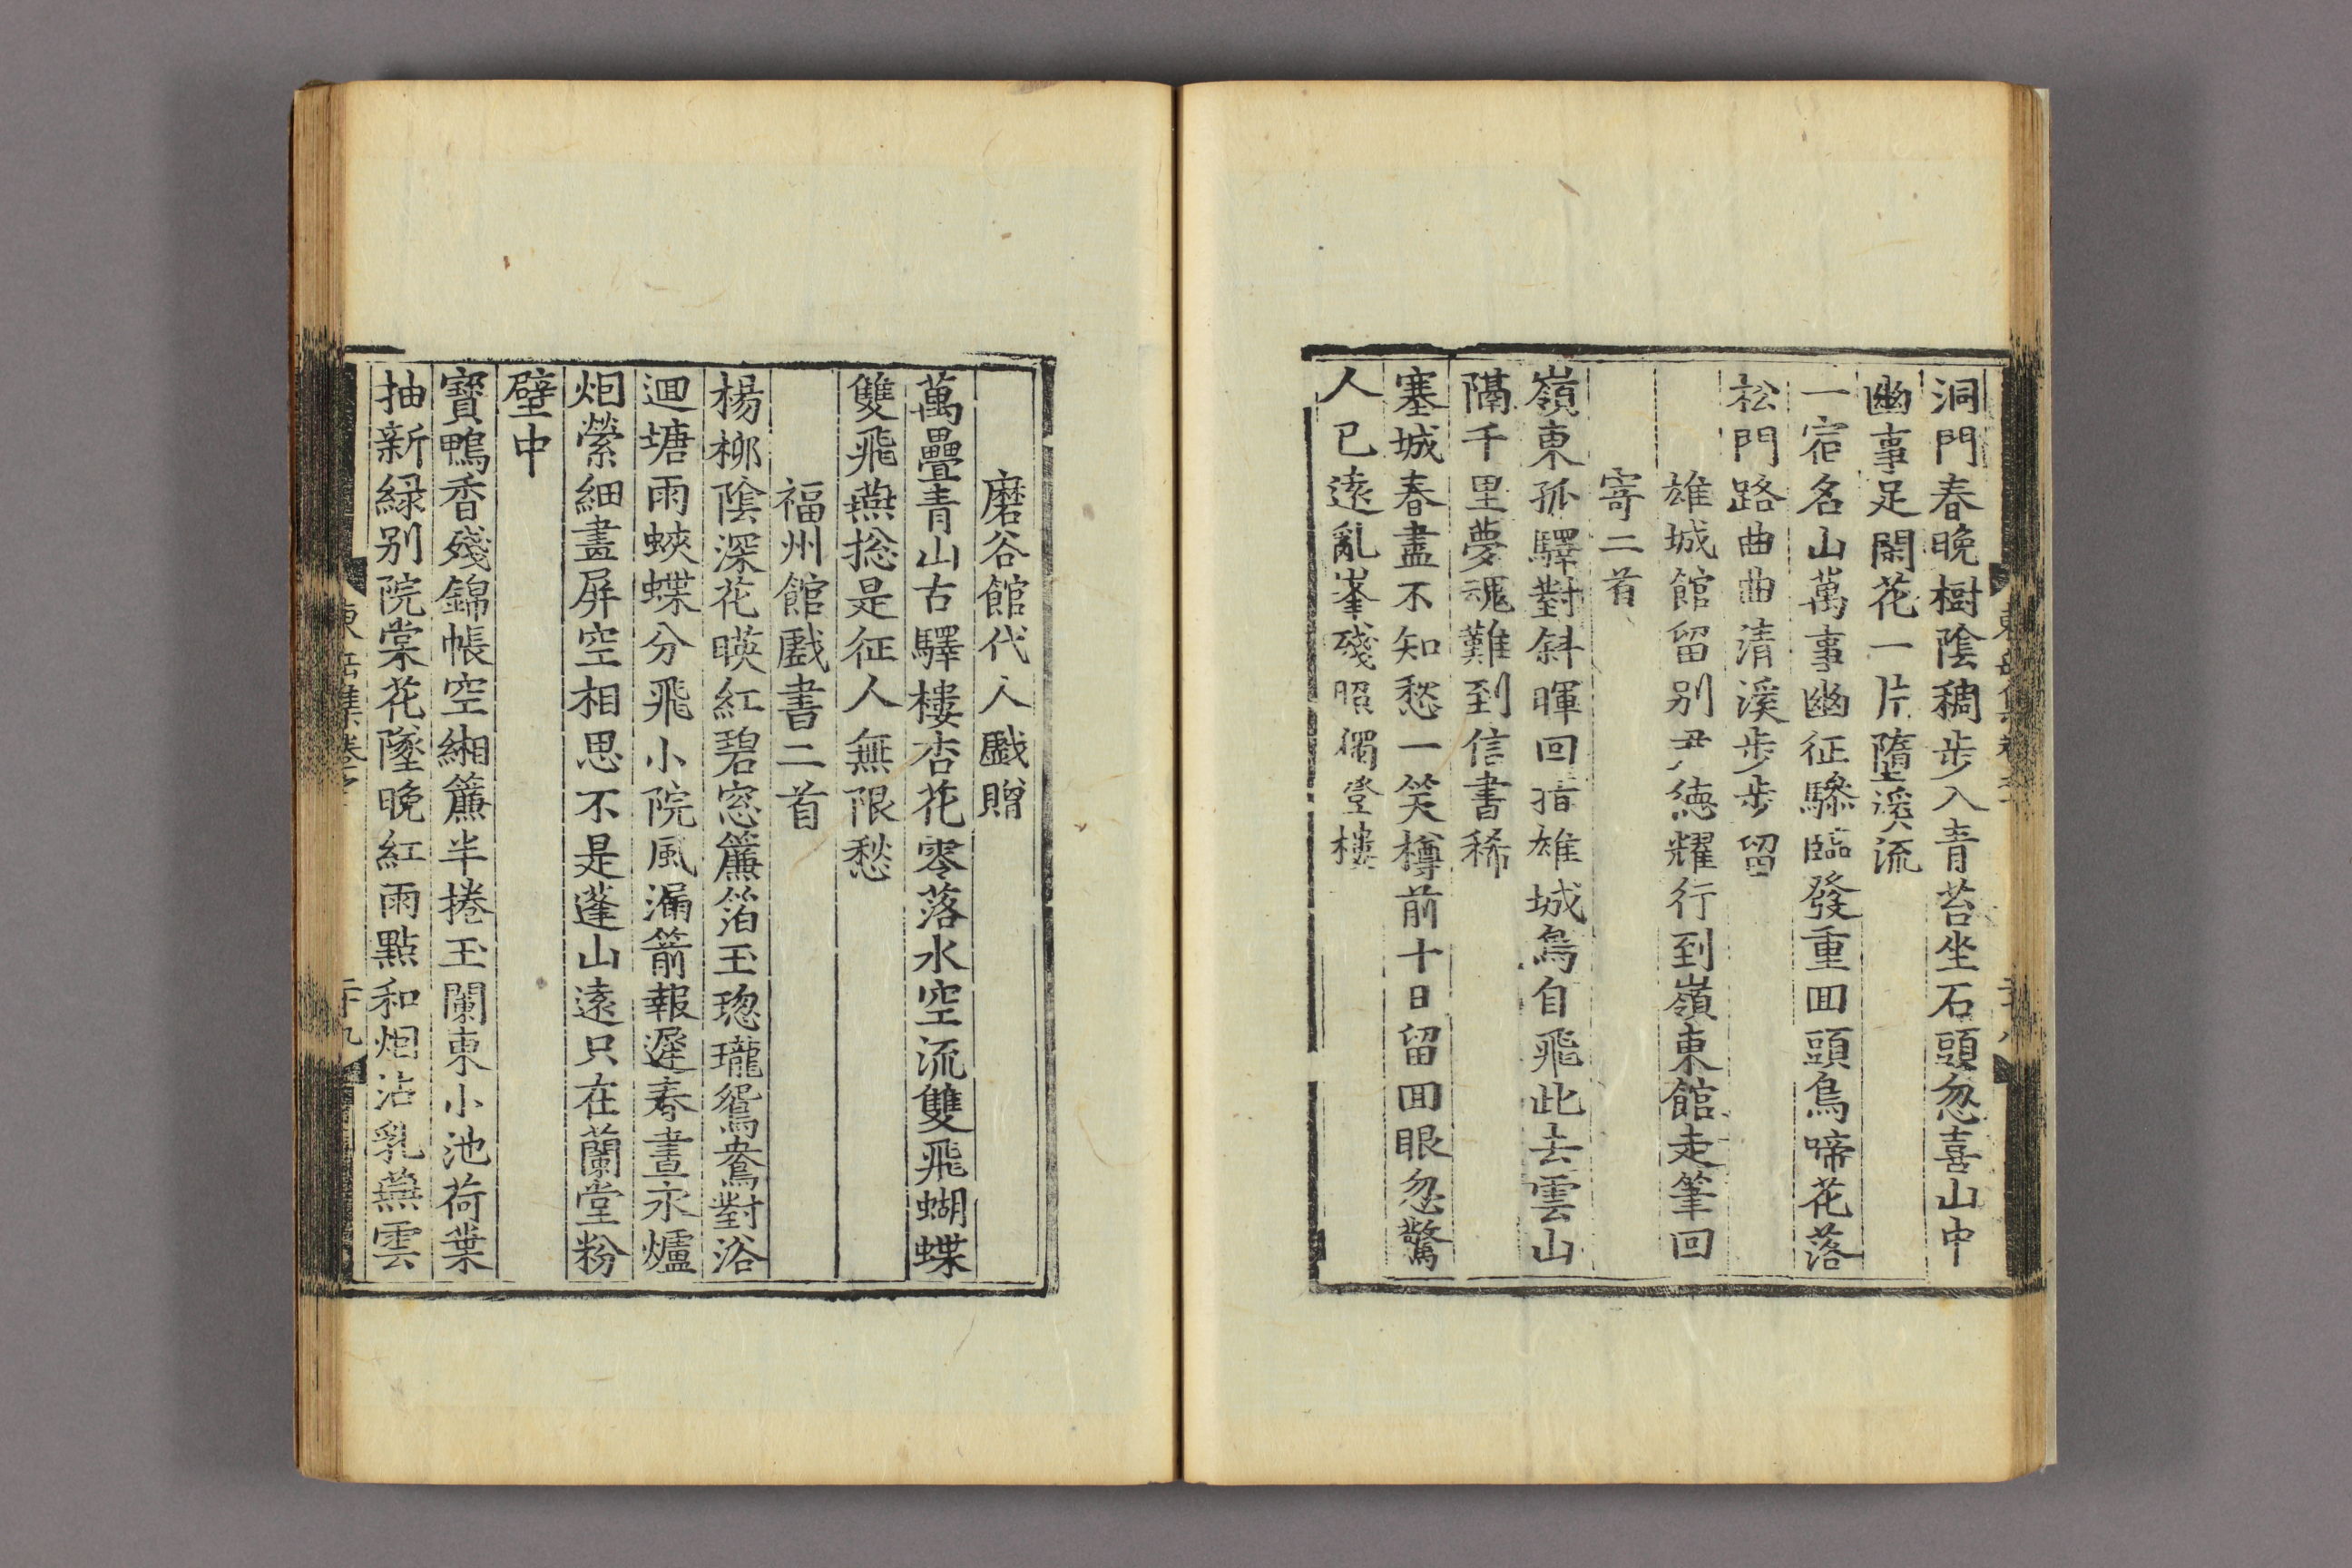 洞門春晚樹陰稠步入靑苔坐石頭忽喜山中
幽事足閑花一片墮溪流
一宿名山萬事幽征驂臨發重回頭鳥啼花落
松門路曲曲淸溪步步留
雄城館留別尹德耀行到嶺東館走筆回
寄二首
嶺東孤驛對斜暉回指雄城鳥自飛此去雲山
隔千里夢魂難到信書稀
塞城春盡不知愁一笑樽前十日留回眼忽驚
人已遠亂峯殘照獨登樓
磨谷館代人戱贈
萬疊靑山古驛樓杏花零落水空流雙飛蝴蝶
雙飛燕捴是征人無限愁
福州館戱書二首
楊柳陰深花暎紅碧窓簾箔玉璁瓏鴛鴦對浴
迴塘雨蛺蝶分飛小院風漏箭報遲春晝永爐
烟縈細畫屏空相思不是蓬山遠只在蘭堂粉
壁中
寶鴨香殘錦帳空緗簾半捲玉闌東小池荷葉
抽新緑别院棠花墜晚紅雨點和烟沾乳燕雲
東岳集卷之
二十九